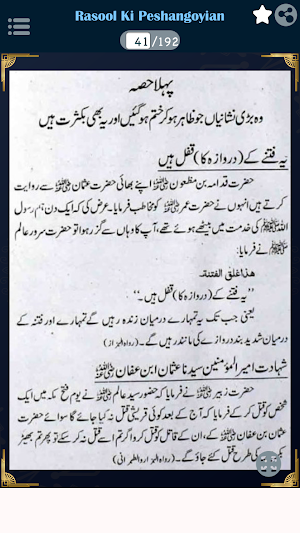 Rasool Ki Peshangoyian
41/192
پہلا حصہ
وہ بڑی نشانیاں جو ظاہر ہو کر ختم ہو گئیں اور یہ بھی بکثرت ہیں
یہ فتنے کے (دروازہ کا) قفل ہیں
حضرت قدامہ بن مظعون ﷺ اپنے بھائی حضرت عثمان ﷺ سے روایت
کرتے ہیں انہوں نے حضرت عمر ﷺ کو مخاطب فرمایا۔ عرض کی کہ ایک دن ہم رسول اللہ
ﷺ کی خدمت میں بیٹھے ہوئے تھے، آپ کا وہاں سے گزر ہوا تو حضرت سرور عالم
ﷺ نے فرمایا:
هذا غلق الفتنة۔
"یہ فتنے کے (دروازہ کا) قفل ہیں۔"
یعنی جب تک یہ تمہارے درمیان زندہ رہیں گے تمہارے اور فتنہ کے
درمیان شدید بند دروازے کی مانند رہیں گے۔ (رواہ البزار)
شہادت امیر المؤمنین سیدنا عثمان ابن عفان
حضرت زبیر نے فرمایا کہ حضور سید عالم ﷺ نے یوم فتح مکہ میں ایک
شخص کو قتل کر کے فرمایا کہ آج کے بعد کوئی قریشی قتل نہ کیا جائے گا سوائے حضرت
عثمان بن عفان کے، ان کے قاتل کو قتل کرو اگر تم اسے قتل نہ کر سکے تو پھر تم بھیڑ
کی طرح قتل کئے جاؤ گے۔ (رواہ البزار والطبرانی)